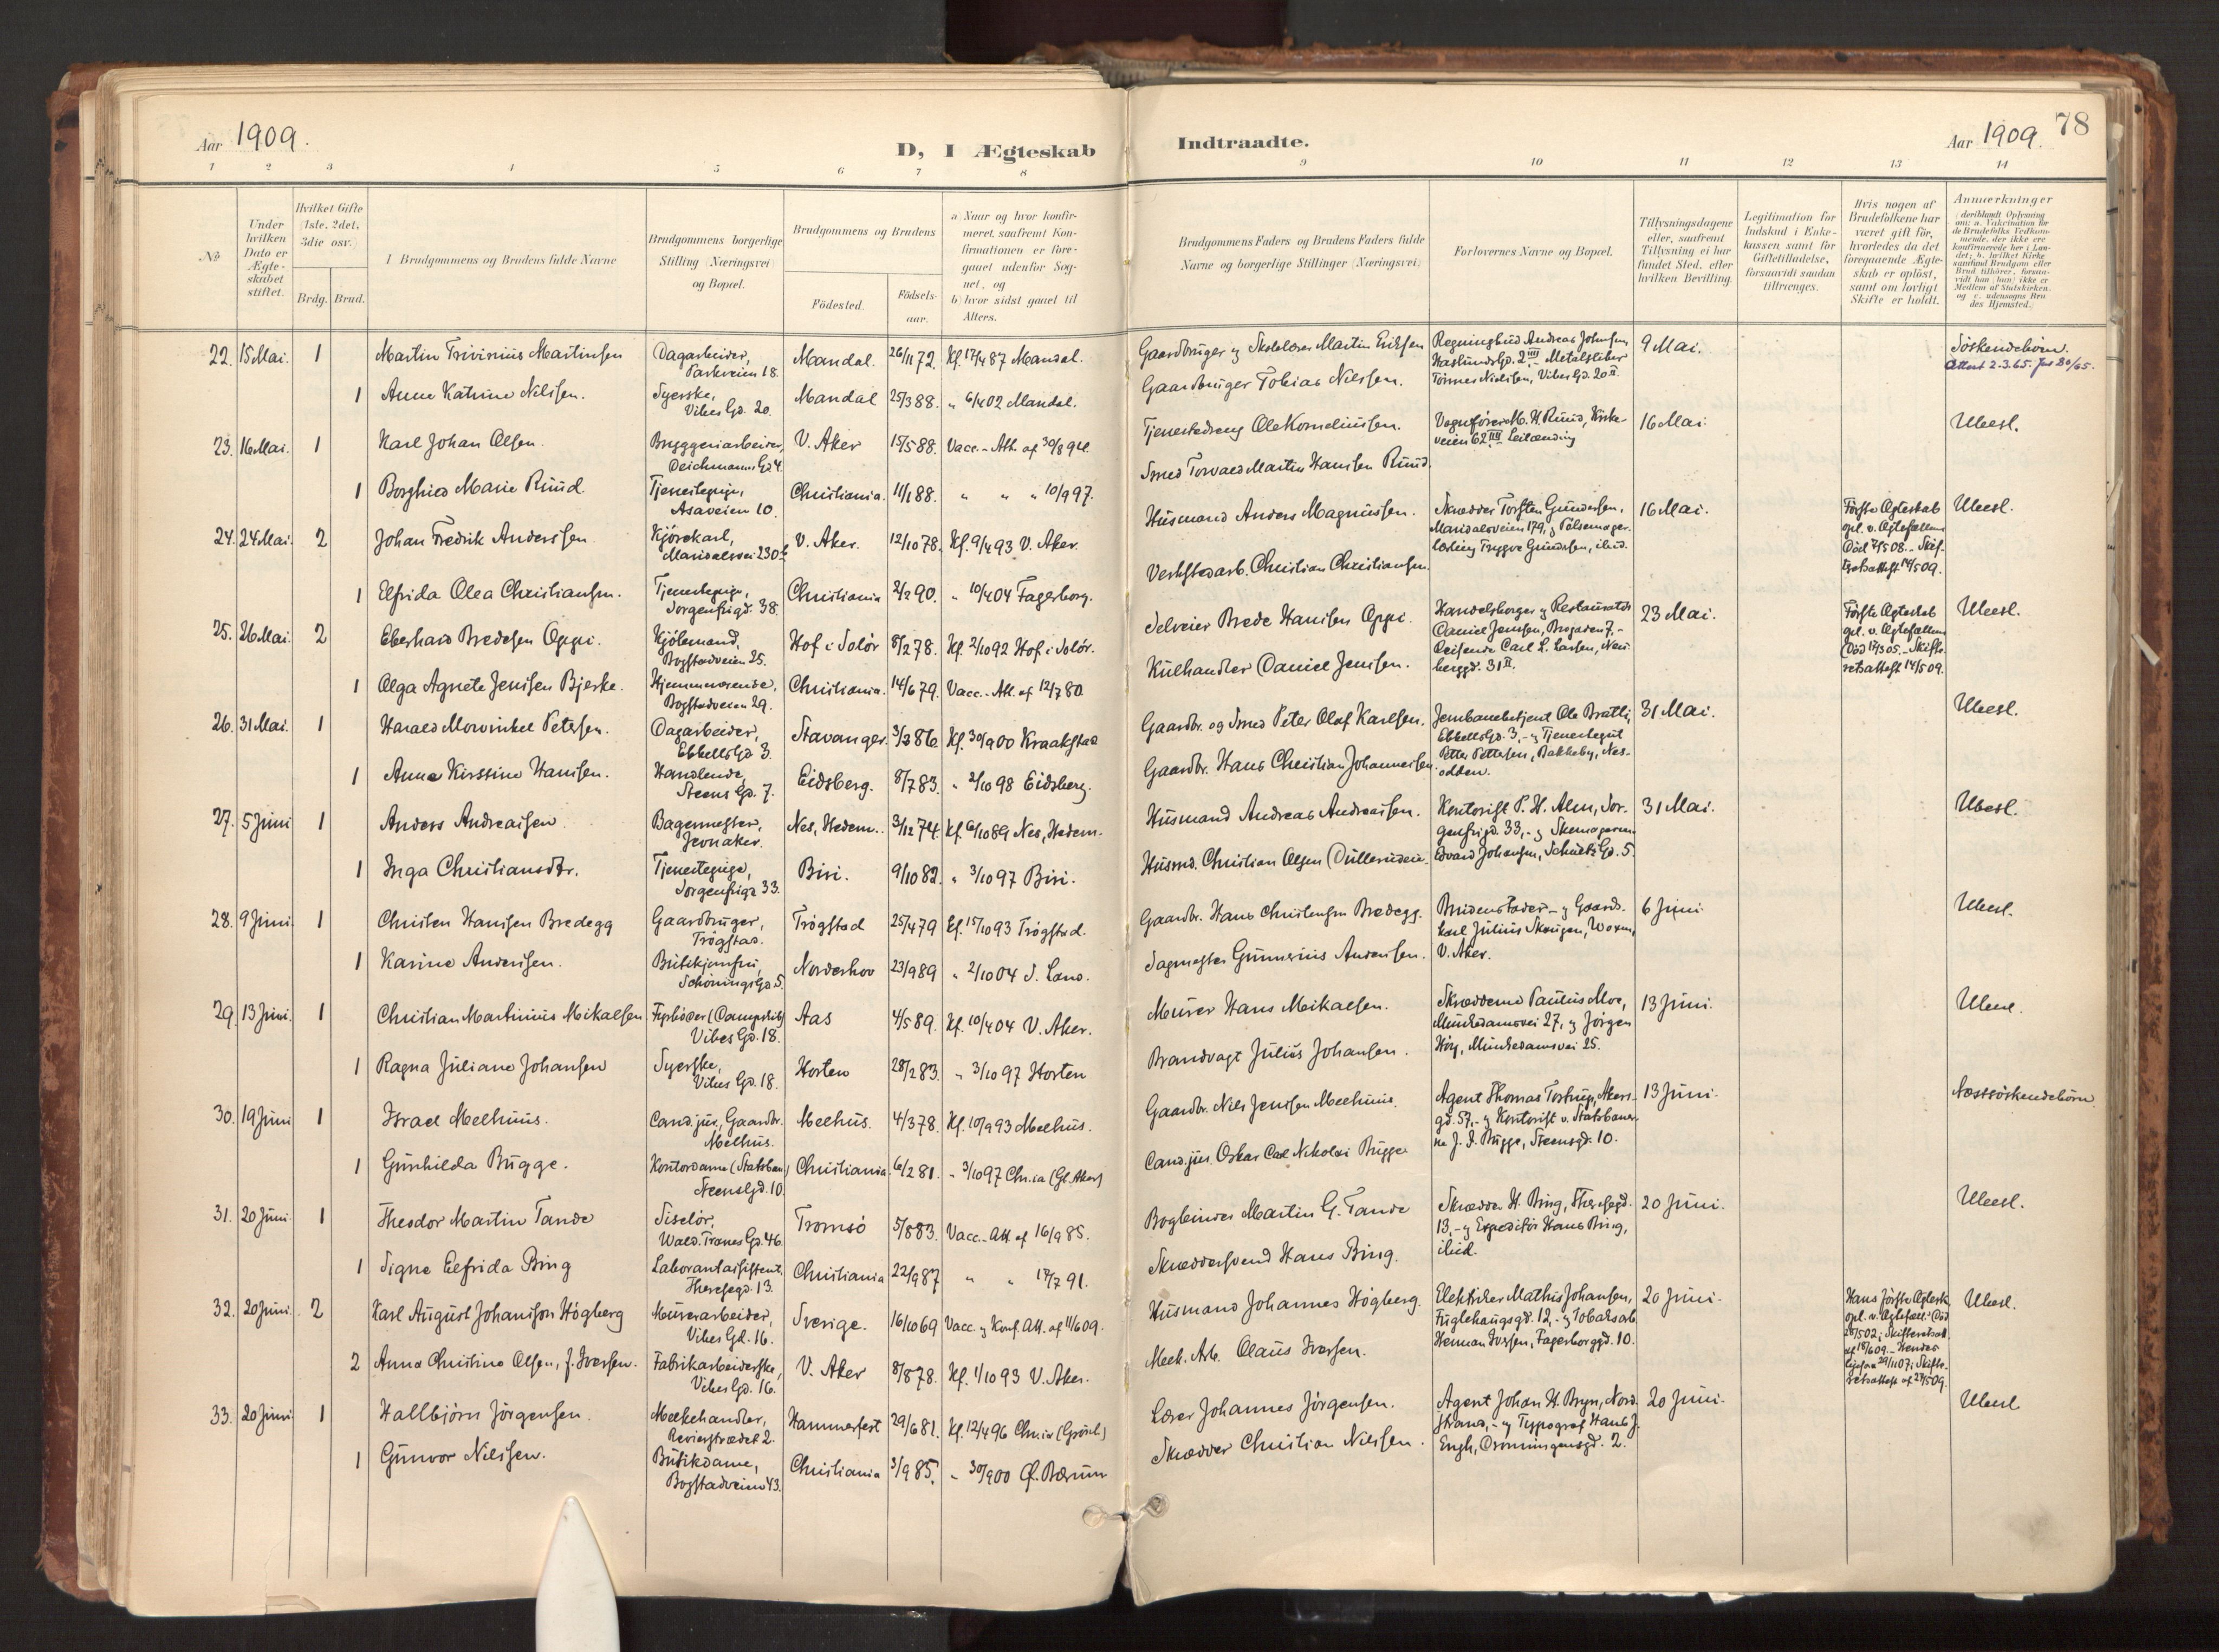 Aar 1909.
D, I Ægteskab
Indtraadte.
Aar 1909.
78
1 2 3 4 5 6 7 8
9 10 11 12 13 14
№
Under hvilken Dato er Ægteskabet stiftet.
Hvilket Gifte (1ste, 2det, 3die osv.)
Brdg. Brud.
Brudgommens og Brudens fulde Navne
Brudgommens borgerlige Stilling (Næringsvei) og Bopæl.
Brudgommens og Brudens
Födested.
Födselsaar.
a) Naar og hvor konfirmeret, saafremt Konfirmationen er foregaaet udenfor Sognet, og
b) hvor sidst gaaet til Alters.
Brudgommens Faders og Brudens Faders fulde Navne og borgerlige Stillinger (Næringsvei).
Forlovernes Navne og Bopæl.
Tillysningsdagene eller, saafremt Tillysning ei har fundet Sted, efter hvilken Bevilling.
Legitimation for Indskud i Enkekassen samt for Giftetilladelse, forsaavidt saadan tiltrænges.
Hvis nogen af Brudefolkene har været gift för, hvorledes da det foregaaende Ægteskab er oplöst, samt om lovligt Skifte er holdt.
Anmærkninger
(deriblandt Oplysning om: a. Vakcination for de Brudefolks Vedkommende, der ikke ere konfirmerede her i Landet; b. hvilket Kirkesamfund Brudgom eller Brud tilhörer, forsaavidt han (hun) ikke er Medlem af Statskirken, og c. udensogns Brudes Hjemsted.)
22. 15 Mai. 1 Martin Trivinius Martinsen Dagarbeider, Parkveien 18. Mandal. 26/11 72. Kf. 17/4 87 Mandal. Gaardbruger og Skolelærer Martin Eriksen Regningsbud Andreas Johnsen, Haslunds Gd. 2 IIII - Metalsliber Tönnes Nielsen, Vibes Gd. 20 II. 9 Mai. Söskendebörn.
Attest 2.3.65.
1 Anne Katrine Nilsen. Syerske, Vibes Gd. 20. Mandal 25/3 88. " 6/4 02 Mandal. Gaardbruger Tobias Nilsen.
23. 16 Mai. 1 Karl Johan Olsen. Bryggeriarbeider, Deichmanns Gd 4. V. Aker 15/5 88. Vacc.-Att. af 30/8 94. Tjenestedreng Ole Kornelinssen. Vognfører M. H. Ruud, Kirkeveien 62 IIII 16 Mai. Ubesl.
1 Borghild Marie Ruud. Tjenestepige, Asaveien 10. Christiania. 11/1 88. " " " 10/9 97. Smed Torvald Martin Hansen Ruud.
24. 24 Mai. 2 Johan Fredrik Anderssen. Kjörekarl, Maridalsvei 230 V. Aker. 12/10 78. Kf. 9/4 93 V. Aker. Husmand Anders Magnussen. Skrædder Torsten Gundersen, Maridalsveien 179, og Pölsemagerlærling Trygve Gundersen, ibid. 16 Mai. Förste Ægteskab opl. v. Ægtefællens Död 7/5 08. - Skifteretsattest 14/5 09. Ubesl.
1 Elfrida Olea Christiansen. Tjenestepige, Sorgenfrigd. 38. Christiania 2/2 90. " 10/4 04 Fagerborg. Verkstedarb. Christian Christiansen.
25. 26 Mai. 2 Eberhard Bredesen Oppi. Kjölemand, Bogstadveien 25. Hof i Solör 8/2 78. Kf. 2/10 92 Hof i Solör. Selveier Brede Hansen Oppi. Handelsborger og Restauratör Daniel Jenssen, Brogaden 7, - Reisende Carl L. Larsen, Neuberggd. 31 II. 23 Mai. Förste Ægteskab opl. v. Ægtefællens Död 17/3 05. - Skifteretsattest 14/5 09. Ubesl.
1 Olga Agnete Jenssen Bjerke. Hjemmeværende, Bogstadveien 29. Christiania. 14/6 79. Vacc.-Att. af 12/7 80. Kulhandler Daniel Jenssen.
26. 31 Mai. 1 Harald Morvinkel Petersen. Dagarbeider, Ebbells Gd 3. Stavanger. 3/2 86. Kf. 30/9 00 Kraakstad Gaardbr. og Smed Peter Olaf Karlsen. Jernbanebetjent Ole Bratli, Ebbells Gd. 3, - og Tjenestegut Petter Pettersen, Bakkeby, Nesodden. 31 Mai. Ubesl.
1 Anna Kirstine Hansen. Handlende, Steens Gd. 7. Eidsberg. 8/7 83. " 2/10 98 Eidsberg. Gaardbr. Hans Christian Johannesen.
27. 5 Juni 1 Anders Andreassen. Bagermester, Jevnaker. Nes, Hedem. 3/12 74 Kf. 6/10 89 Nes, Hedem. Husmand Andreas Andreassen. Kontorist P. H. Alm, Sorgenfrigd. 33, - og Skomagersvend Edvard Johansen, Schultz Gd. 5. 31 Mai. Ubesl.
1 Inga Christiansdtr. Tjenestepige, Sorgenfrigd 33. Biri. 9/10 82. " 3/10 97 Biri. Husmd. Christian Olsen Dullerudeie.
28. 9 Juni. 1 Christen Hansen Bredegg Gaardbruger, Trögstad. Trögstad 25/4 79 Kf. 15/10 93 Trögstad. Gaardbr. Hans Christensen Bredegg. Brudens Fader - og Gaardskarl Julius Skougen, Woxen, V. Aker. 6 Juni. Ubesl.
1 Karine Andersen. Butikjomfru, Schönings Gd 5. Norderhov 23/9 89 " 2/10 04 S. Land. Sagmester Gunnerius Andersen.
29. 13 Juni. 1 Christian Martinius Mikalsen Fyrböder (Dampskib) Vibes Gd. 18. Aas 4/5 89. Kf. 10/4 04 V. Aker. Murer Hans Mikalsen. Skrædderne Paulus Moe, Munkedamsvei 27, og Jörgen Höy, Munkedamsvei 25. 13 Juni. Ubesl.
1 Ragna Juliane Johansen Syerske, Vibes Gd. 18. Horten 28/2 83. " 3/10 97 Horten Brandvagt Julius Johansen.
30. 19 Juni 1 Israel Melhuus. Cand. jur., Gaardbr. Melhus. Melhus. 4/3 78. Kf. 10/9 93 Melhus. Gaardbr. Nils Jenssen Melhuus. Agent Thomas Tostrup, Akersgd. 57, - og Kontorist v. Statsbanerne J. J. Bugge, Steensgd. 10. 13 Juni. Næstsöskendebörn.
1 Gunhilda Bugge. Kontordame (Statsban.) Steens Gd. 10. Christiania. 6/2 81. " 3/10 97 Chr.ia (Gl. Aker) Cand. jur. Oskar Carl Nikolai Bugge
31. 20 Juni. 1 Theodor Martin Tande Siselör, Wald. Tranes Gd. 46. Tromsö 5/8 83. Vacc.-Att. af 16/9 85. Bogbinder Martin G. Tande Skrædder H. Bing, Theresegd. 13, - og Expeditör Hans Bing, ibid. 20 Juni. Ubesl.
1 Signe Elfrida Bing Laborantassistent, Theresegd. 13. Christiania 22/9 87 " " 17/7 91. Skræddersvend Hans Bing.
32. 20 Juni. 2 Karl August Johansson Högberg Murerarbeider, Vibes Gd. 16. Sverige. 16/10 69 Vacc. og Konf. Att. af 11/6 09. Husmand Johannes Högberg. Elektriker Mathis Johansen, Fuglehaugsgd. 12, - og Tobaksarb. Herman Iversen, Fagerborggd. 10. 20 Juni. Hans förste Ægtesk. opl. v. Ægtefæll. Död 28/5 02; Skifteretsatt. af 18/6 09. - Hendes ligesaa 29/11 07; Skifteretsattest af 24/5 09. Ubesl.
2 Anna Christine Olsen, f. Iversen. Fabrikarbeiderske, Vibes Gd. 16. V. Aker 8/8 78. Kf. 1/10 93 V. Aker. Mek. Arb. Olaus Iversen.
33. 20 Juni. 1 Hallbjörn Jörgensen. Melkehandler, Revierstrædet 2. Hammerfest 29/6 81. Kf. 12/4 96 Chr.ia (Grönl.) Lærer Johannes Jörgensen. Agent Johan H. Bryn, Nordstrand, - og Typograf Hans J. Engh, Dronningensgd. 2. 20 Juni. Ubesl
1 Gunvor Nilssen. Butikdame, Bogstadveien 43. Christiania 3/9 85. " 30/9 00 Ø. Bærum Skrædder Christian Nilssen.